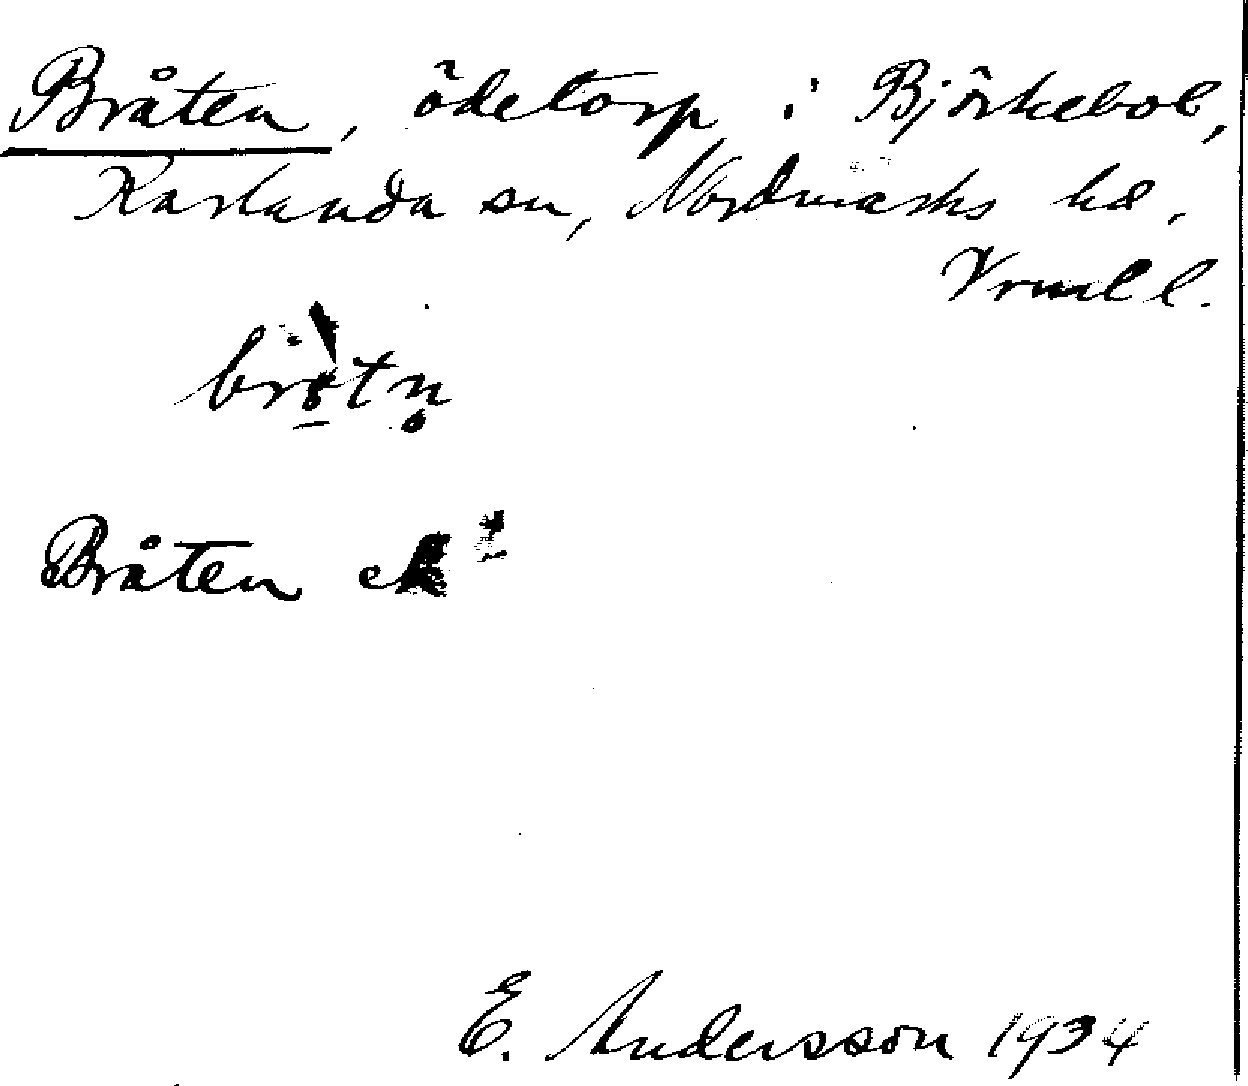 Bråten, ödetorp i Björkebol,
Karlanda sn, Nordmarks hd,
Vrml l.
Bråten
E. Andersson 1934